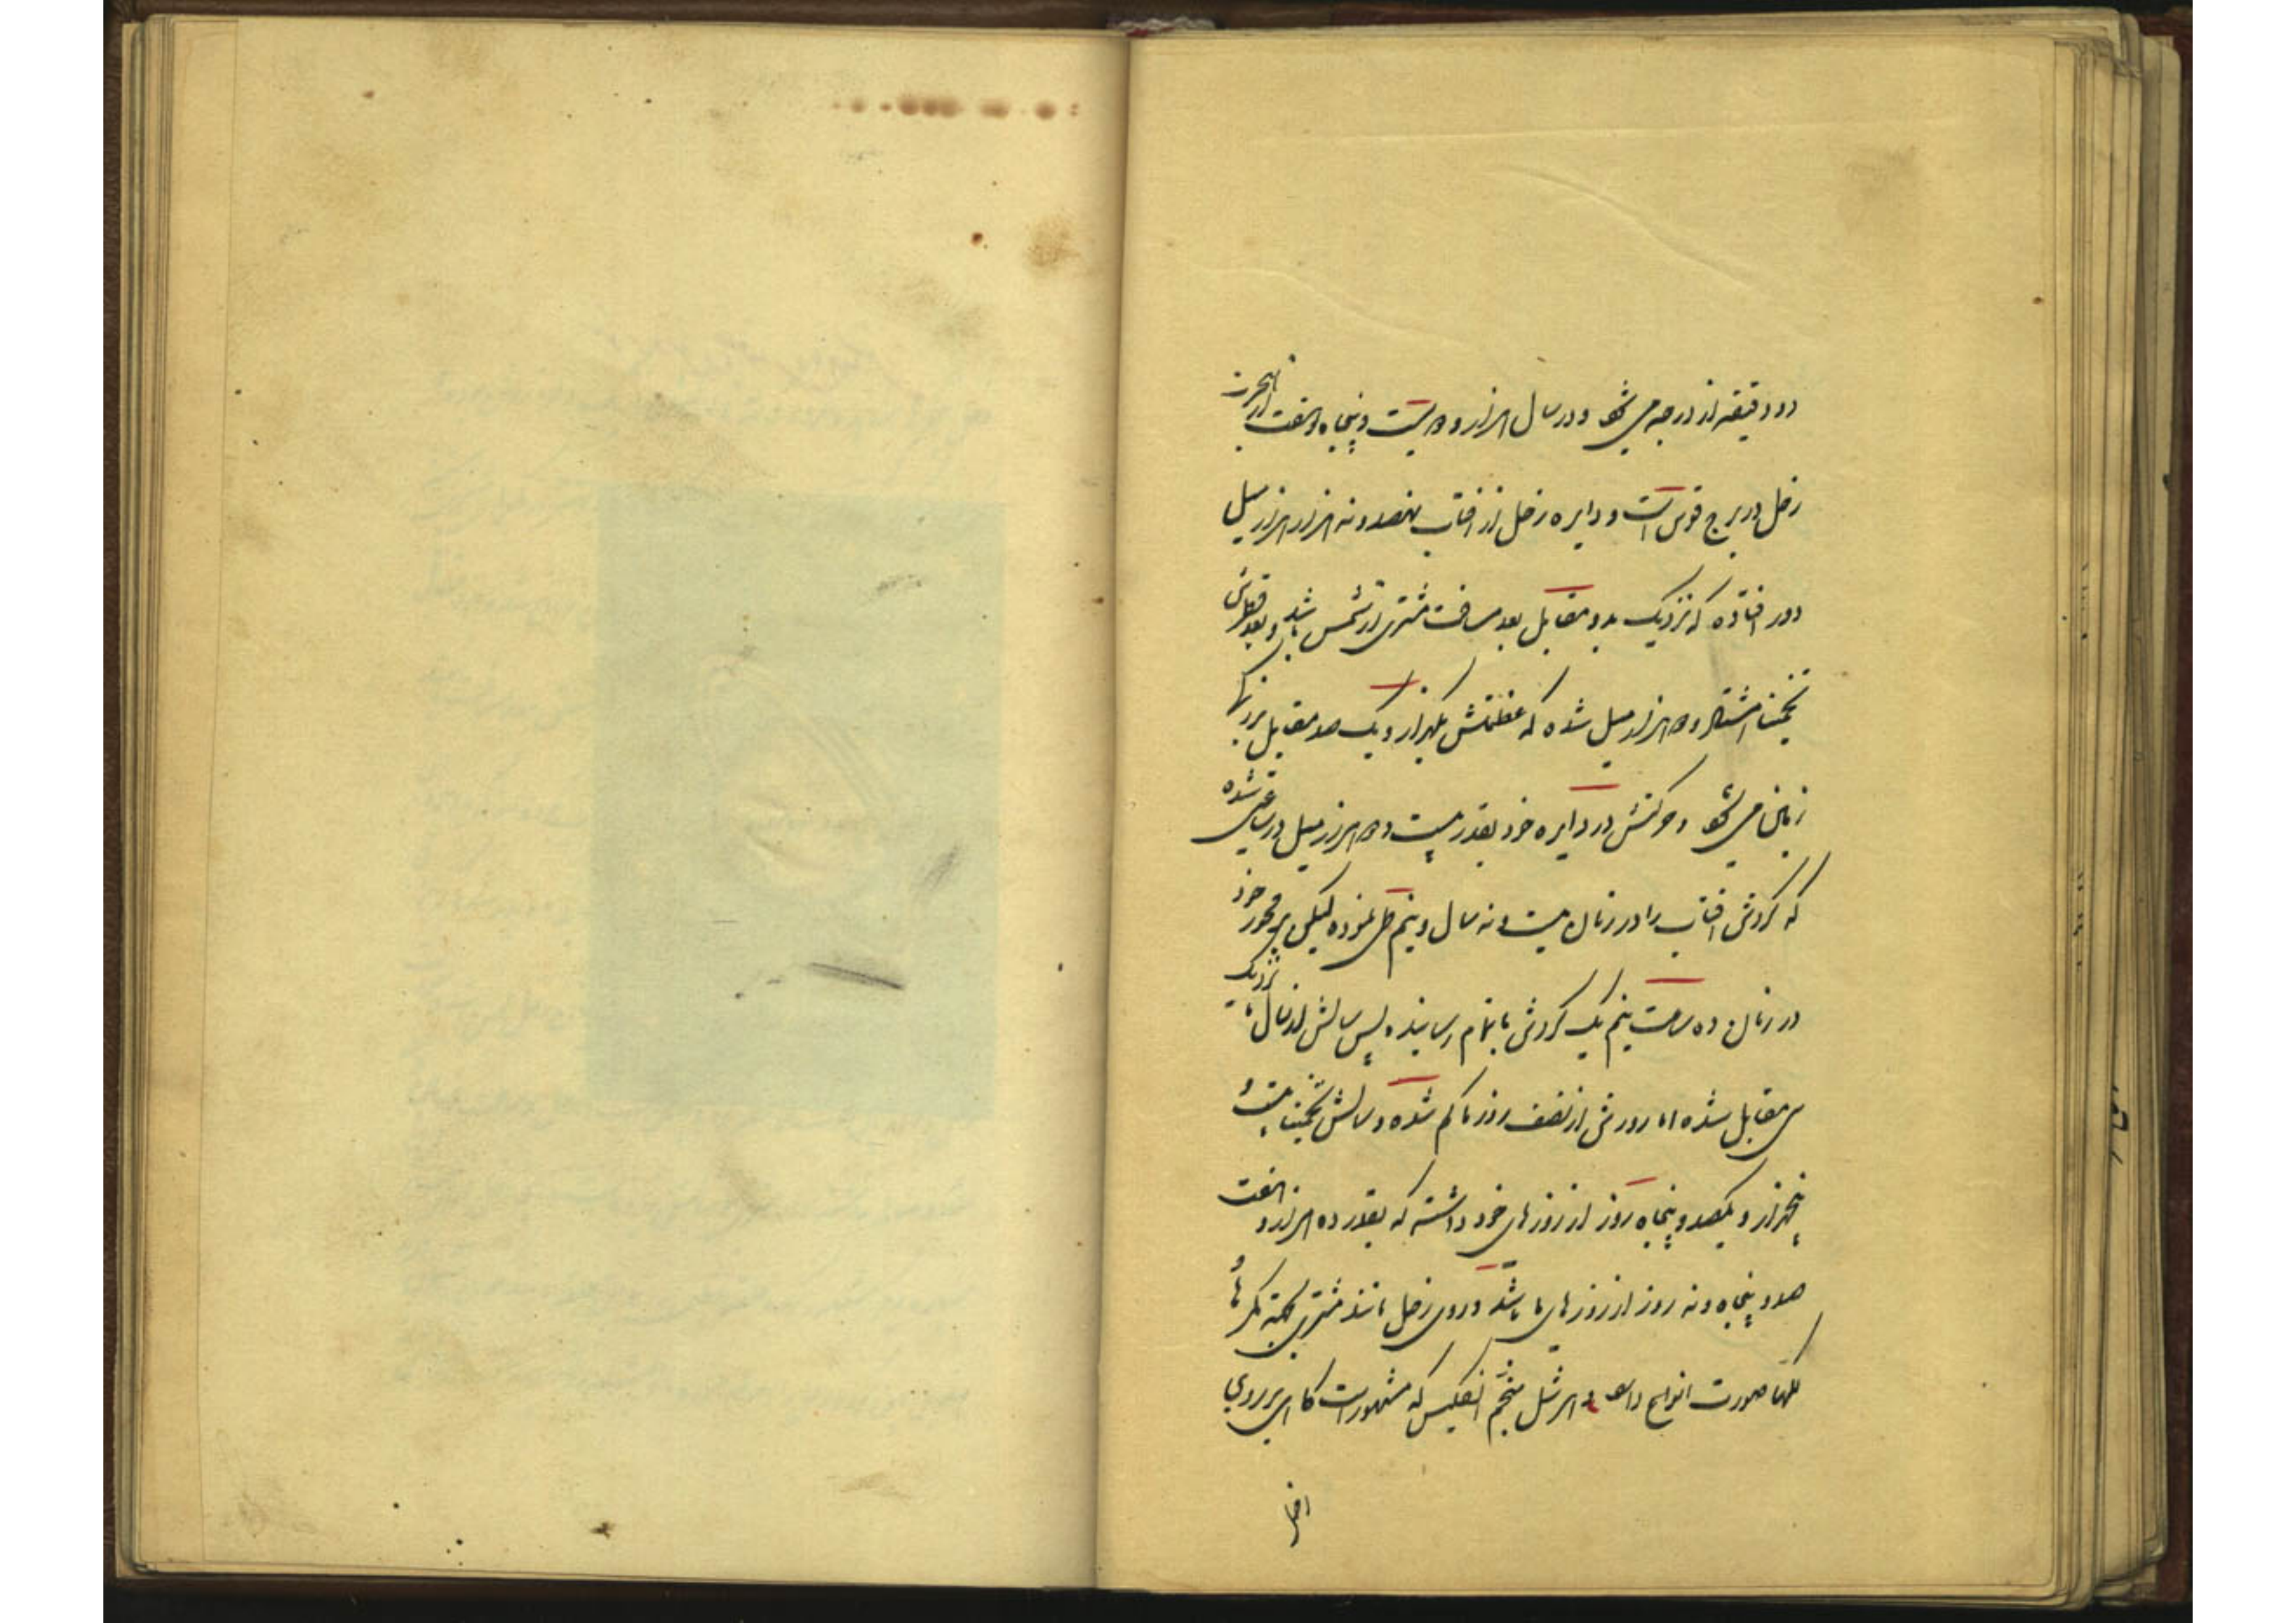 دو دقیقه از درجه می شود و در سال هزار و دویست و پنجاه و هفت از هجرت
زحل در برج قوس است و دایره زحل از آفتاب نهصد و نه هزار هزار میل
دور افتاده که نزدیک بدو مقابل بعد مسافت مشتری از شمس باشد و بعد قطرش
تخمینا هشتاد و هزار میل شده که عظمتش یکهزار و یک صد مقابل بزرگی
زمین می شود و حرکتش در دایره خود بقدر بیست و دو هزار میل در ساعتی شده
که گردش آفتاب را در زمان بیست و نه سال و نیم طی نموده لیکن بر محور خود
در زمان ده ساعت نیم یک گردش باتمام رسانیده پس سالش از سال ما نزدیک
سی مقابل شده اما روزش از نصف روز ما کم شده و سالش تخمینا بیست و
پنجهزار و یکصد و پنجاه روز از روزهای خود داشته که بقدر ده هزار و هفت
صد و پنجاه و نه روز از روزهای ما باشد و روی زحل مانند مشتری کمربندها و
کلها صورت انواع دارد و هرشل منجم انگلیس که مشهور است گاهی بر روی